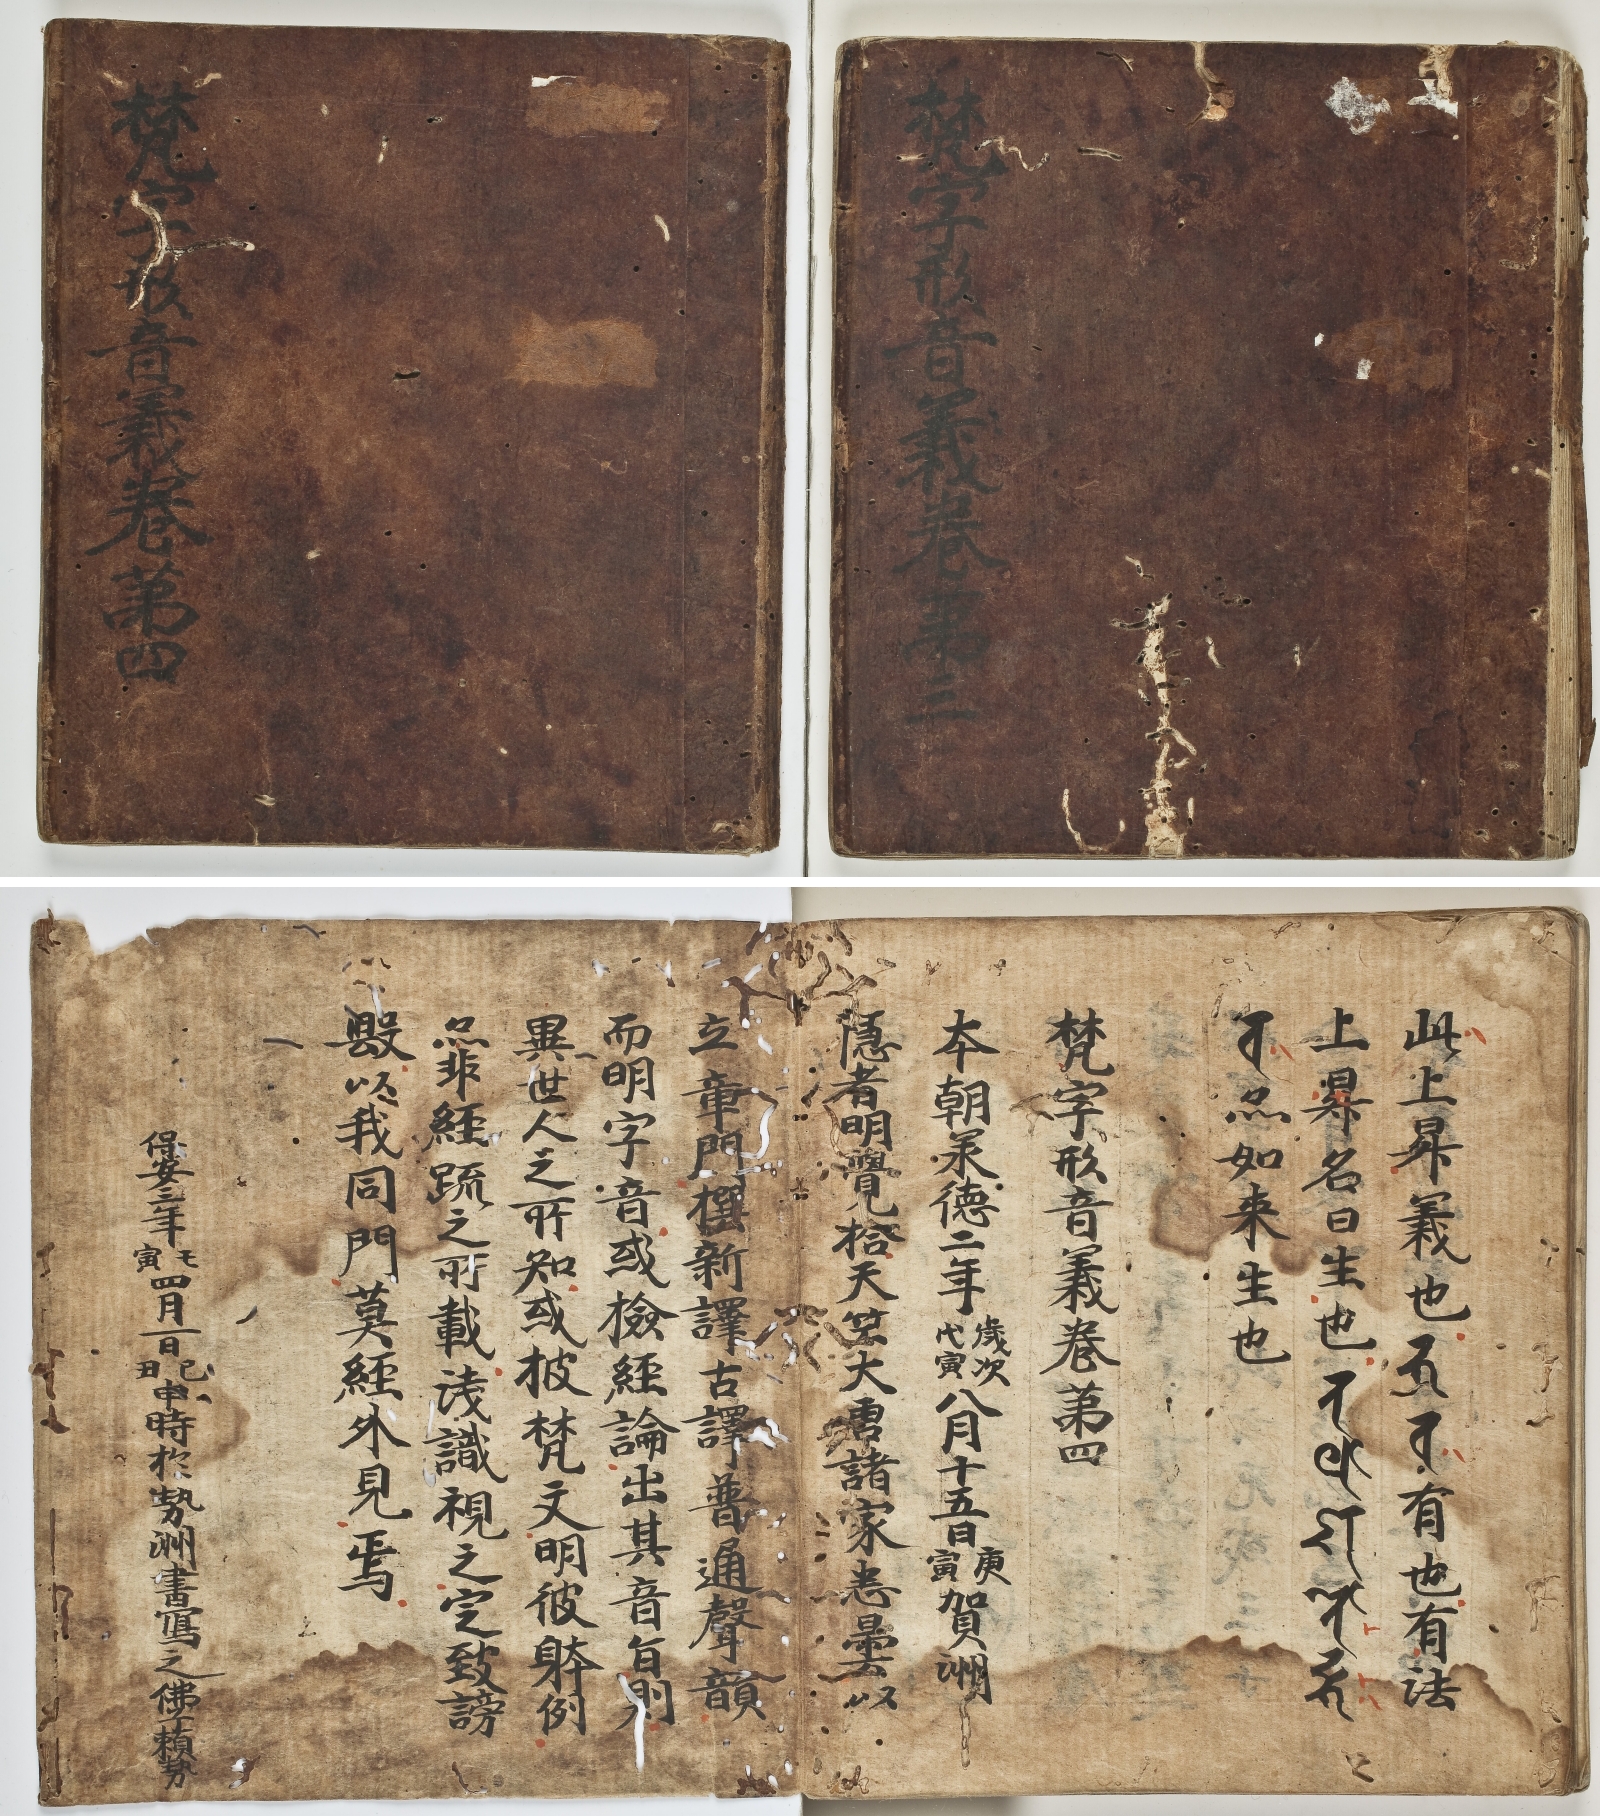 梵字形音義卷第三
梵字形音義卷第四
此上昇義也 有也有法
上昇名曰生也
如来生也
梵字形音義卷第四
本朝承德二年歲次戊寅八月十五日庚寅賀洲
隱者明覺拾天竺大唐諸家悉曇以
立章門撰新譯古譯普通聲韻
而明字音或檢經論出其音旨則
異世人之所知或披梵文明彼躰例
亦非經䟽之所載淺識視之定致謗
毀以我同門莫經外見焉
保安三年壬寅四月一日己丑申時於勢洲書寫之佛子賴勢